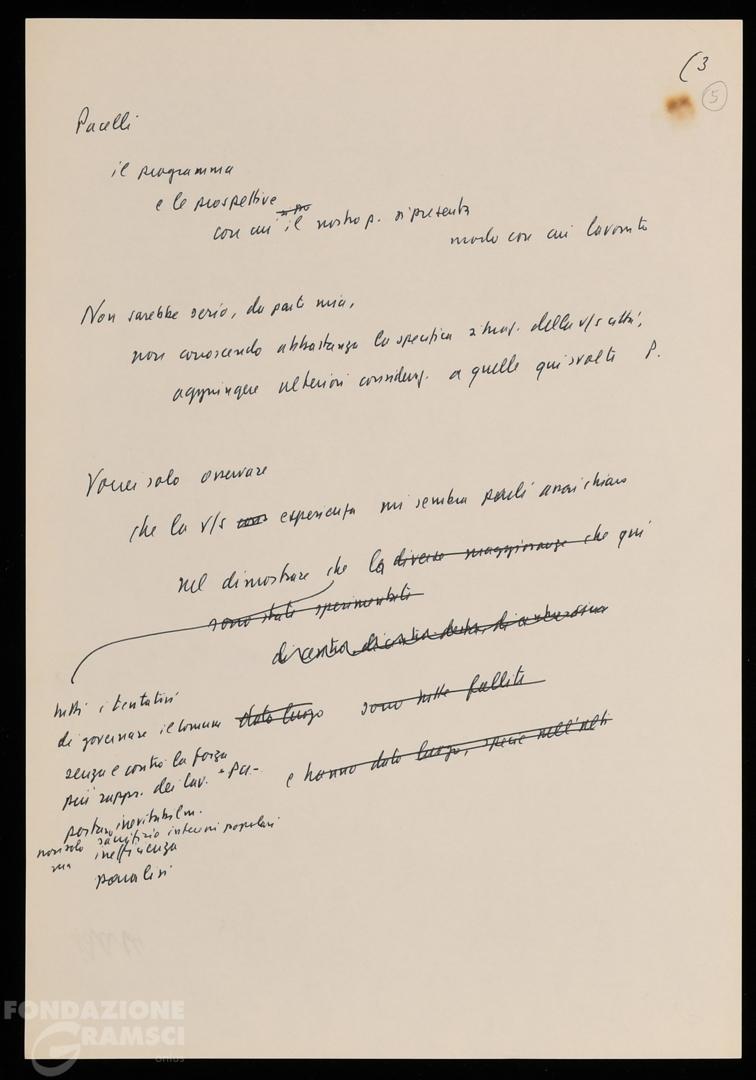 (3
5
Pacelli
il programma
e le prospettive
con cui il nostro p. si presenta
modo con cui lavorato
Non sarebbe serio, da parte mia,
non conoscendo abbastanza la specifica situaz. della v/s città,
aggiungere ulteriori consideraz. a quelle qui svolte P.
Vorrei solo osservare
che la v/s esperienza mi sembra parli assai chiaro
nel dimostrare che le diverse maggioranze che qui
sono stati sperimentati
di centro, di centro destra, di centro sinistra
tutti i tentativi
di governare il comune stato luogo sono tutte fallite
senza e contro la forza
più rappr. dei lav.
e hanno dato luogo, specie nell'
portano inevitabilm.
non solo sacrifizio interessi popolari
ma inefficienza
paralisi
FONDAZIONE
GRAMSCI
onlus